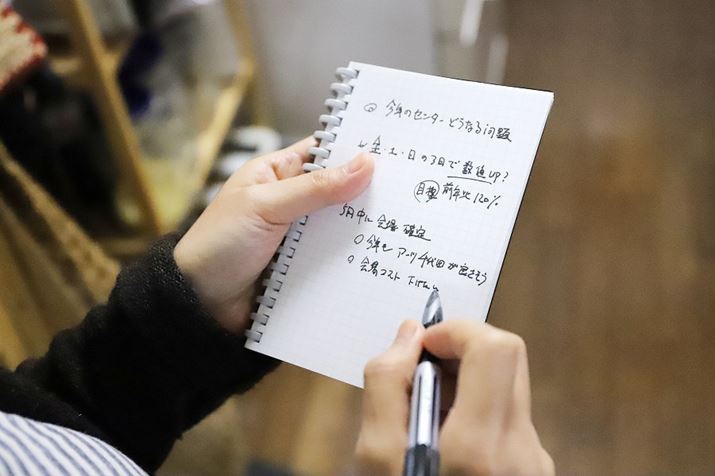 今年のセンターどうなる問題
金・土・日の3日で数値UP?
目標 前年比120%
5月中に会場確定
○今年もアーツ千代田が
○会場コスト